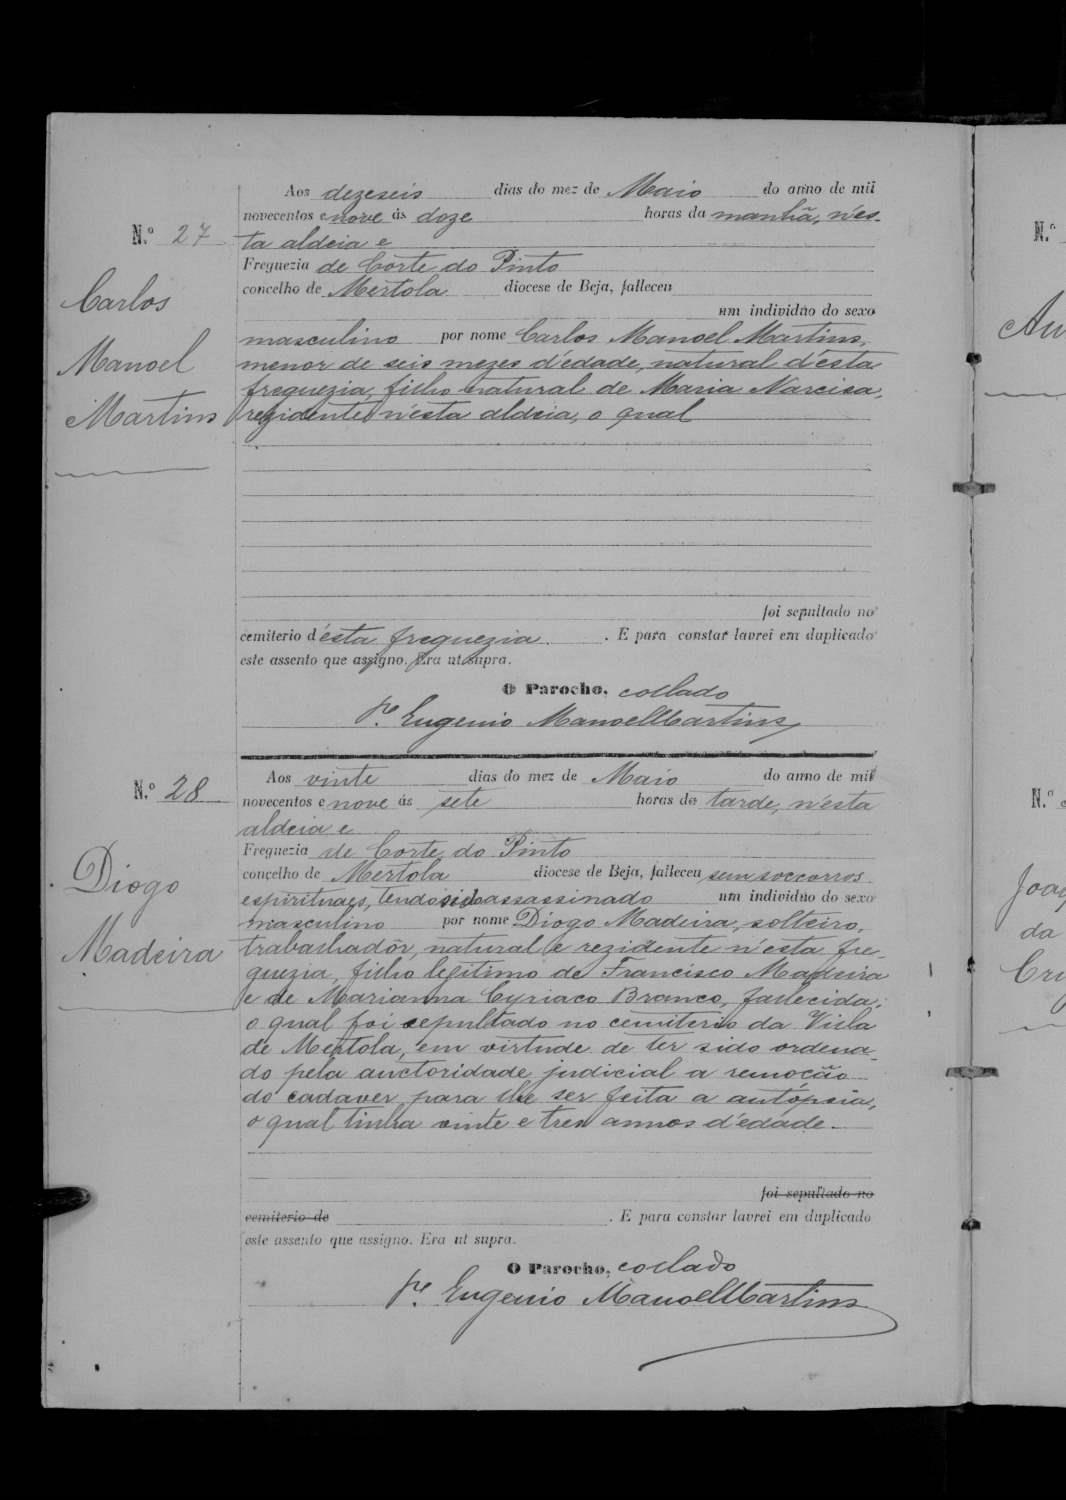 Aos dezeseis dias do mez de Maio do anno de mil
novecentos e nove ás doze horas da manhã, n'es-
N.º 27 ta aldeia e
Freguezia de Corte do Pinto
Carlos
concelho de Mertola diocese de Beja, falleceu
um individuo do sexo
masculino por nome Carlos Manoel Martins,
Manoel
menor de seis mezes d'edade, natural d'esta
freguezia, filho natural de Maria Narciza,
Martins
rezidente n'esta aldeia, o qual
foi sepultado no
cemiterio d'esta freguezia. E para constar lavrei em duplicado
este assento que assigno. Era ut supra.
O Parocho, collado
P.e Eugenio Manoel Martins
Aos vinte dias do mez de Maio do anno de mil
N.º 28
novecentos e nove ás sete horas da tarde, n'esta
aldeia e
Freguezia de Corte do Pinto
Diogo
concelho de Mertola diocese de Beja, falleceu sem soccorros
espirituaes, tendo sido assassinado um individuo do sexo
masculino por nome Diogo Madeira, solteiro,
Madeira
trabalhadôr, natural e rezidente n'esta fre-
guezia, filho legitimo de Francisco Madeira
e de Marianna Cyriaco Branco, fallecida;
o qual foi sepultado no cemiterio da Villa
de Mertola, em virtude de ter sido ordena-
do pela auctoridade judicial a remoção
do cadaver para lhe ser feita a autópsia,
o qual tinha vinte e tres annos d'edade.
foi sepultado no
cemiterio de . E para constar lavrei em duplicado
este assento que assigno. Era ut supra.
O Parocho, collado
P.e Eugenio Manoel Martins
N.º
N.º
da